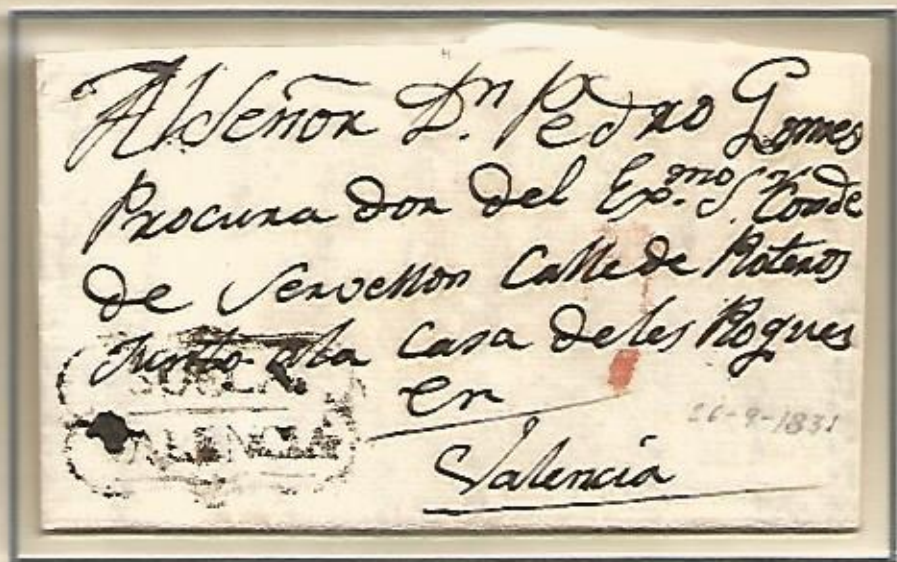 Al Señor Dn. Pedro Gomes
Procurador del Exmo. Sr. Conde
de Servellon Calle de Roteros
Junto ala Casa de les Roques
en
Valencia
VALENCIA
26-9-1831